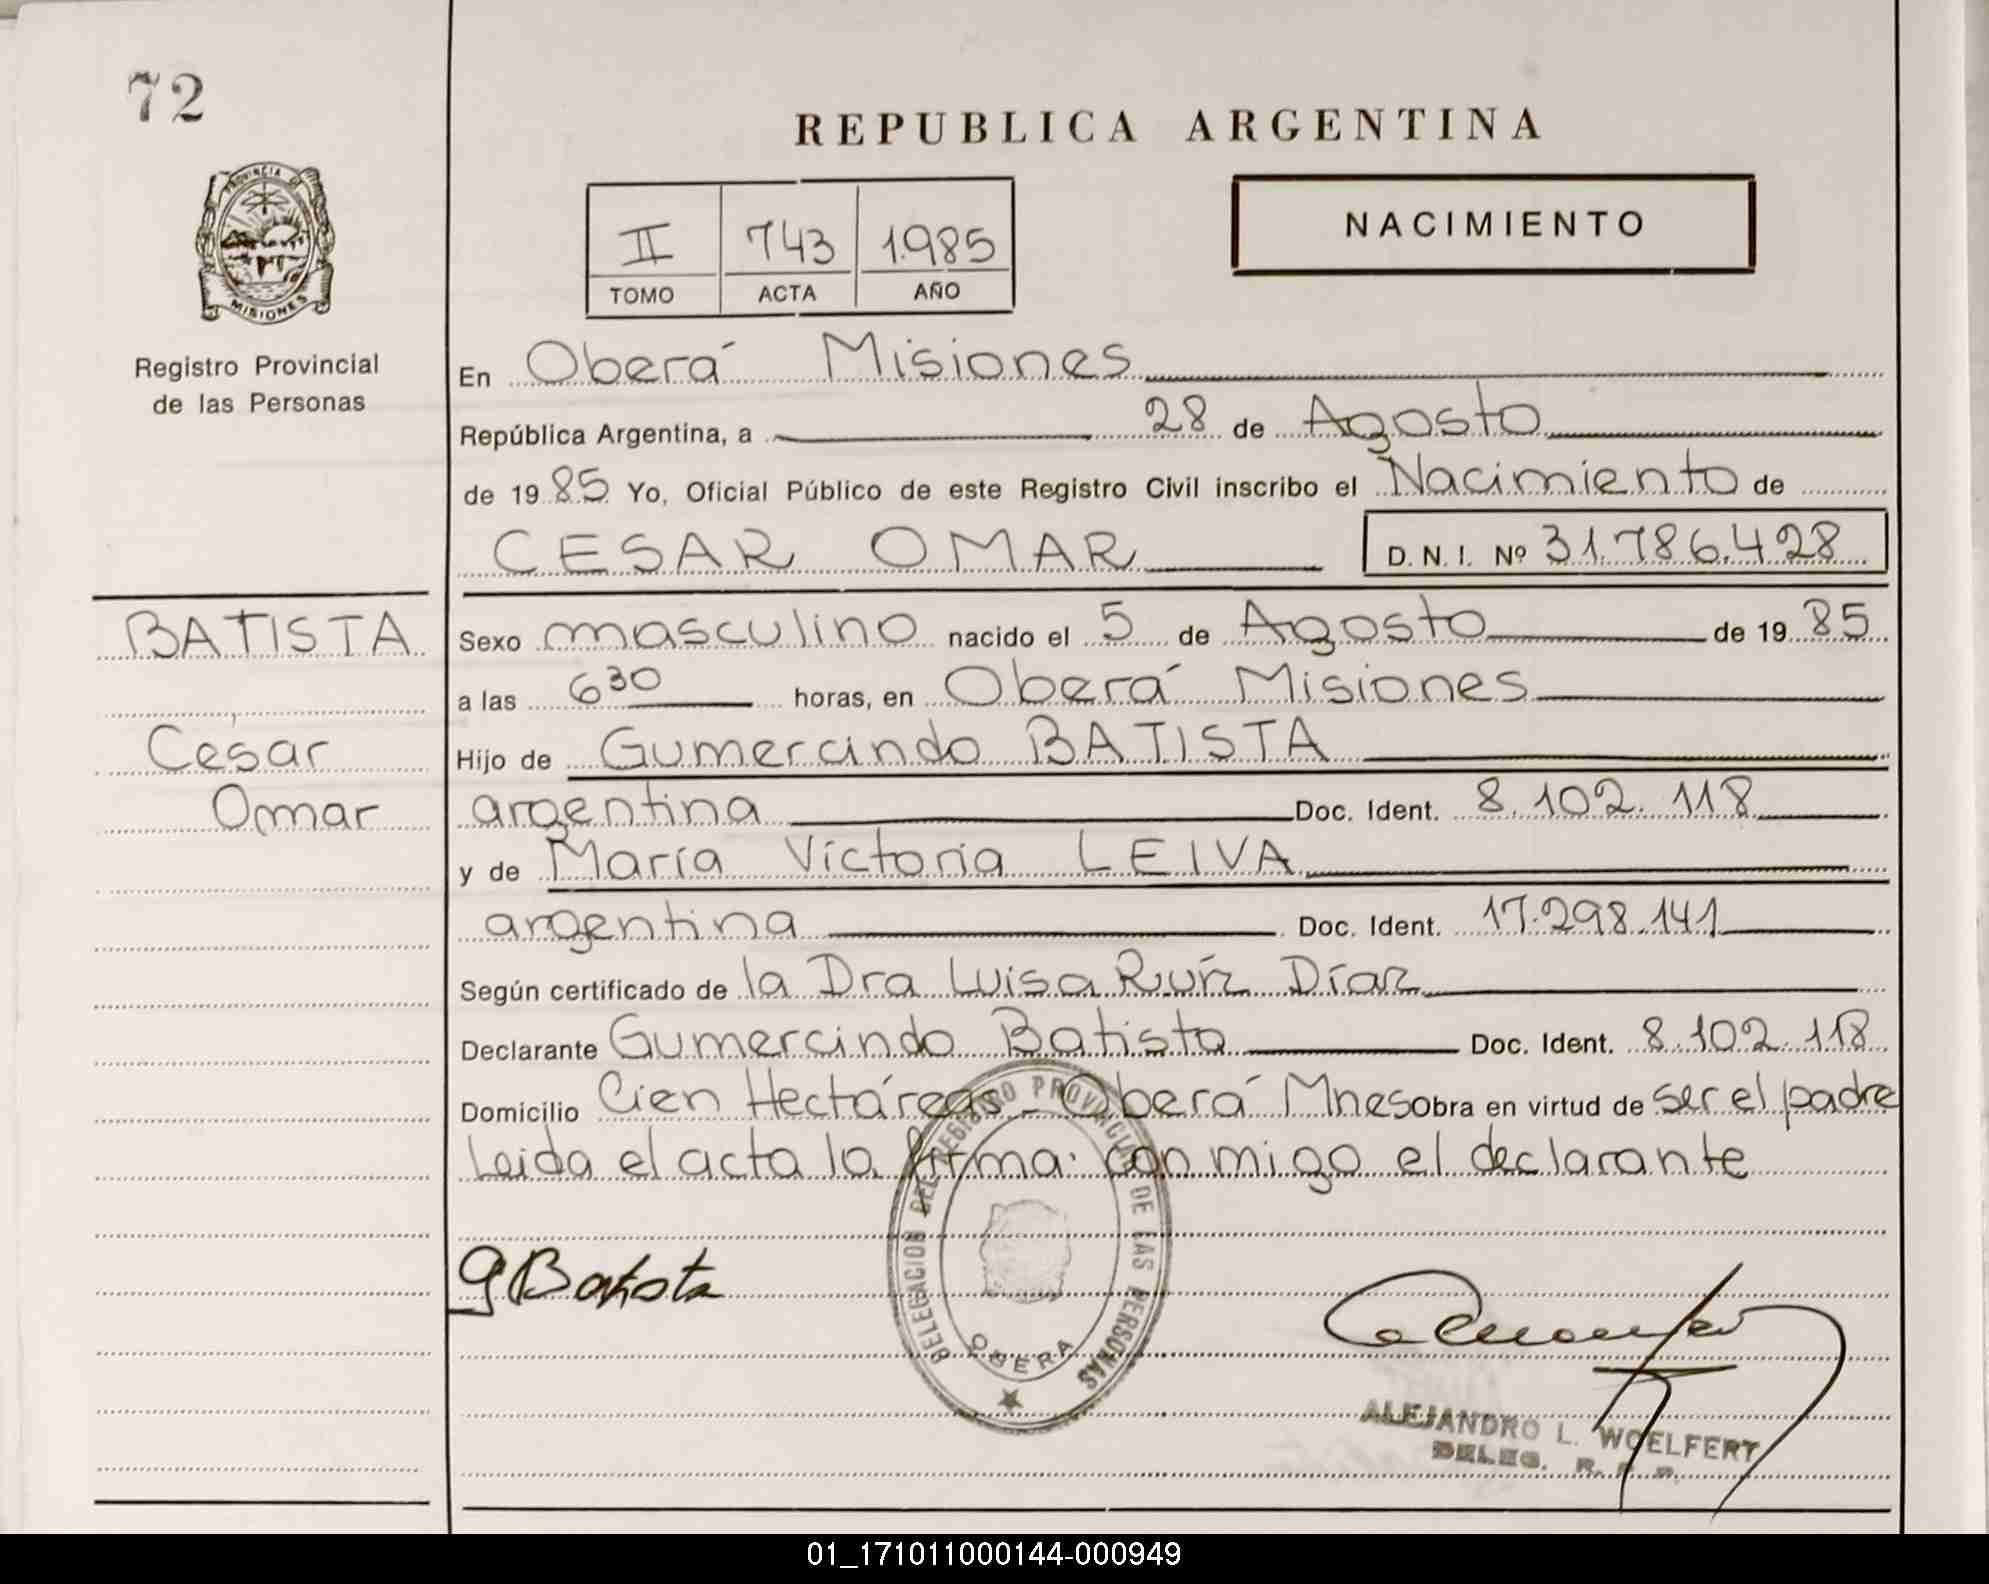 72
REPUBLICA ARGENTINA
PROVINCIA DE
MISIONES
II 743 1.985
TOMO ACTA AÑO
NACIMIENTO
Registro Provincial
de las Personas
En Oberá Misiones
República Argentina, a 28 de Agosto
de 1985 Yo, Oficial Público de este Registro Civil inscribo el Nacimiento de
CESAR OMAR D. N. I. Nº 31.786.428
BATISTA
César
Omar
Sexo masculino nacido el 5 de Agosto de 1985
a las 6 30 horas, en Oberá Misiones
Hijo de Gumercindo BATISTA
argentina Doc. Ident. 8.102.118
y de María Victoria LEIVA
argentina Doc. Ident. 17.298.141
Según certificado de la Dra Luisa Ruíz Díaz
Declarante Gumercindo Batista Doc. Ident. 8.102.118
Domicilio Cien Hectáreas - Oberá Mnes Obra en virtud de ser el padre
Leida el acta la firma con migo el declarante
G Batista
DELEGACION DEL REGISTRO PROVINCIAL DE LAS PERSONAS
OBERA
ALEJANDRO L. WOELFERT
DELEG. R. P. P.
01_171011000144-000949